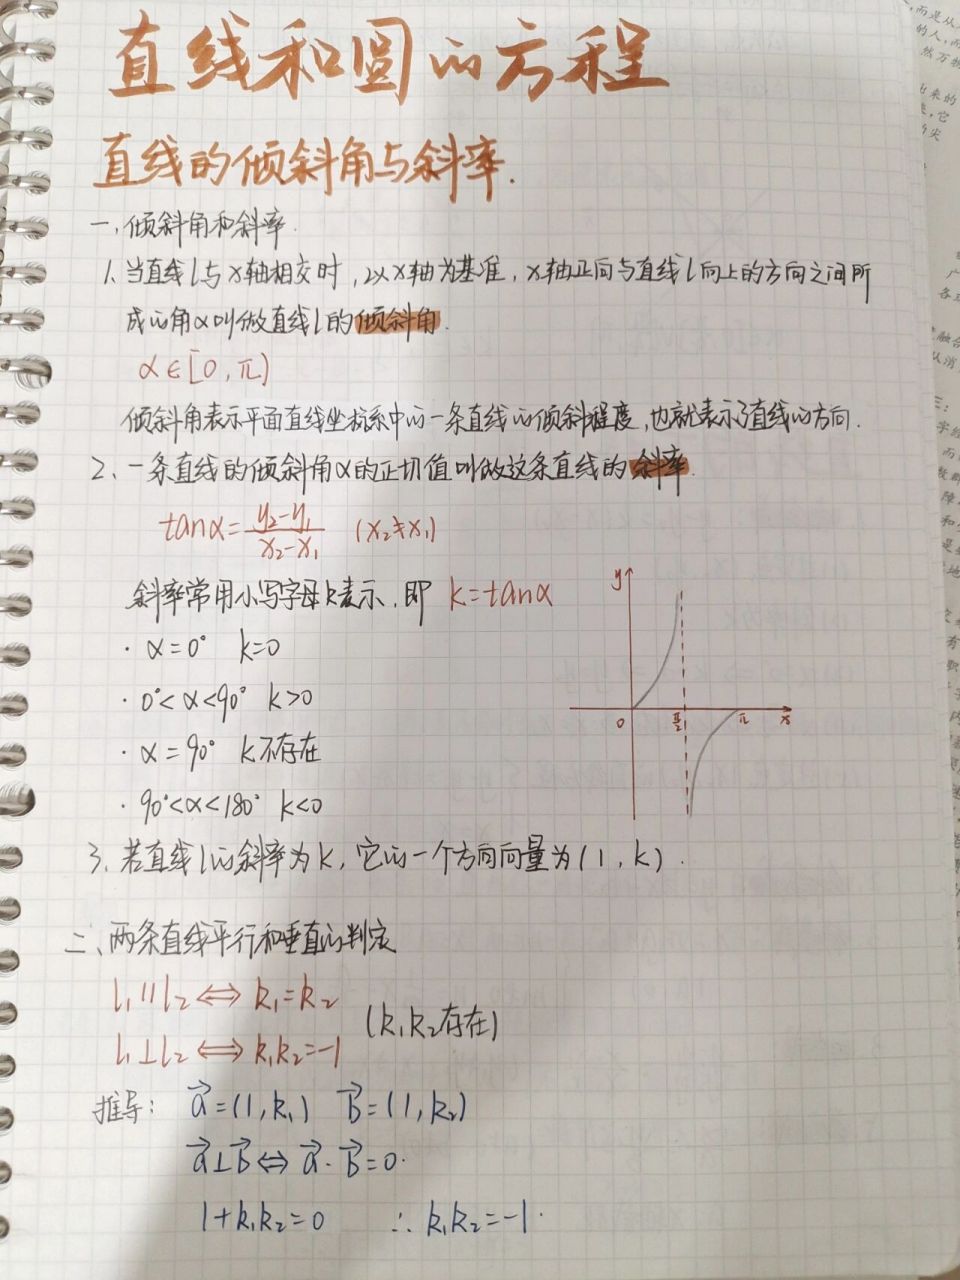 直线和圆的方程
直线的倾斜角与斜率.
一、倾斜角和斜率.
1. 当直线l与x轴相交时,以x轴为基准,x轴正向与直线l向上的方向之间所
成的角α叫做直线l的倾斜角.
α∈[0,π)
倾斜角表示平面直线坐标系中的一条直线的倾斜程度,也就表示了直线的方向.
2、一条直线的倾斜角α的正切值叫做这条直线的斜率.
tanα=(y₂-y₁)/(x₂-x₁) (x₂≠x₁)
斜率常用小写字母k表示,即 k=tanα
· α=0° k=0
· 0°<α<90° k>0
· α=90° k不存在
· 90°<α<180° k<0
y
0 π/2 π x
3、若直线l的斜率为k,它的一个方向向量为(1,k).
二、两条直线平行和垂直的判定
l₁∥l₂⇔k₁=k₂
(k₁k₂存在)
l₁⊥l₂⇔k₁k₂=-1
推导: a⃗=(1,k₁) b⃗=(1,k₂)
a⃗⊥b⃗⇔a⃗·b⃗=0.
1+k₁k₂=0 ∴k₁k₂=-1.